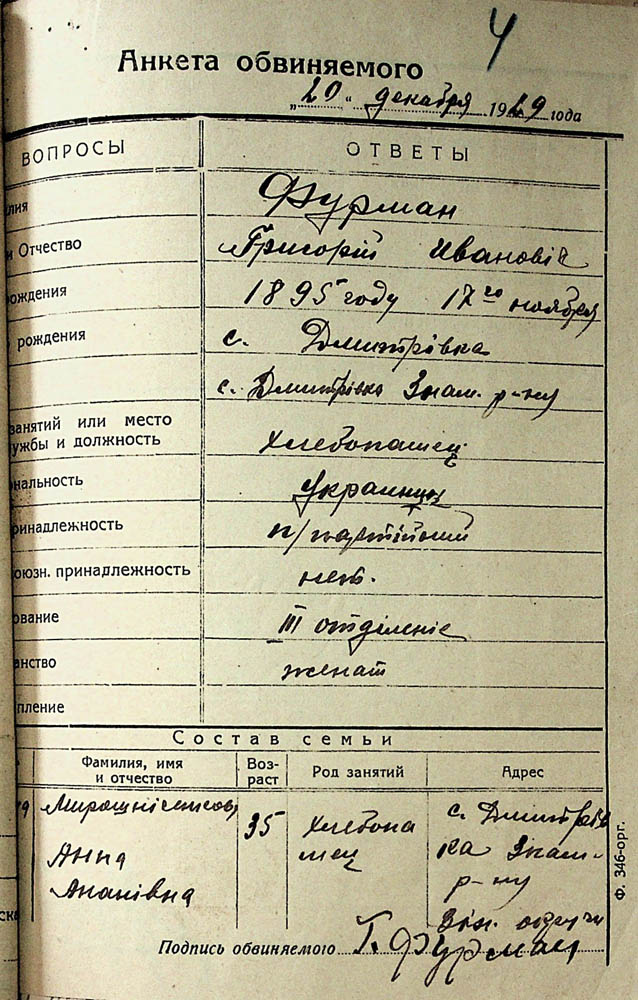 4
Анкета обвиняемого
„20“ декабря 1929 года
ВОПРОСЫ ОТВЕТЫ
лия Фурман
и Отчество Григорій Ивановіч
ождения 1895 году 17го ноября
рождения с. Дмитрівка
с. Дмитрівка Знам. р-ну
занятий или место
ужбы и должность Хлебопашец
нальность Украинец
ринадлежность п/партійний
оюзн. принадлежность нет.
ование III отділеніе
анство женат
пление
Состав семьи
Фамилия, имя
и отчество Воз-
раст Род занятий Адрес
35 Хлебопа с. Дмитрів
Анна шец ка Знам-
Ананівна р-ну
Зін. округи
Подпись обвиняемого Г. Фурман
Ф. 346-орг.